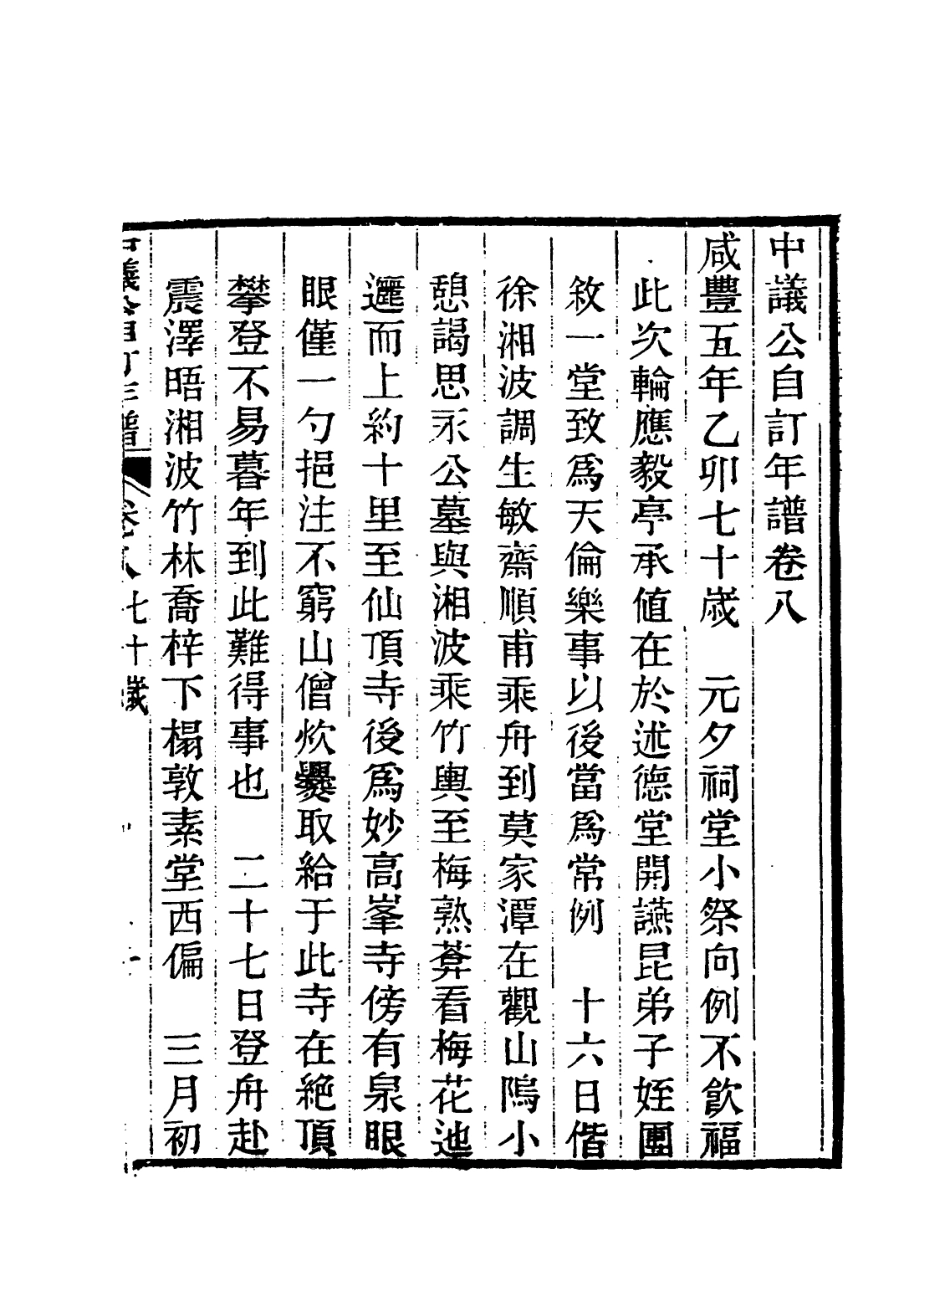 中議公自訂年譜卷八
咸豐五年乙卯七十歲　元夕祠堂小祭向例不飮福
此次輪應毅亭承值在於述德堂開讌昆弟子姪團
敘一堂致爲天倫樂事以後當爲常例　十六日偕
徐湘波調生敏齋順甫乘舟到莫家潭在觀山隝小
憩謁思永公墓與湘波乘竹輿至梅熟葊看梅花迆
邐而上約十里至仙頂寺後爲妙高峯寺傍有泉眼
眼僅一勺挹注不窮山僧炊爨取給于此寺在絶頂
攀登不易暮年到此難得事也　二十七日登舟赴
震澤晤湘波竹林喬梓下榻敦素堂西偏　三月初
中議公自訂年譜　卷八　七十歲　一